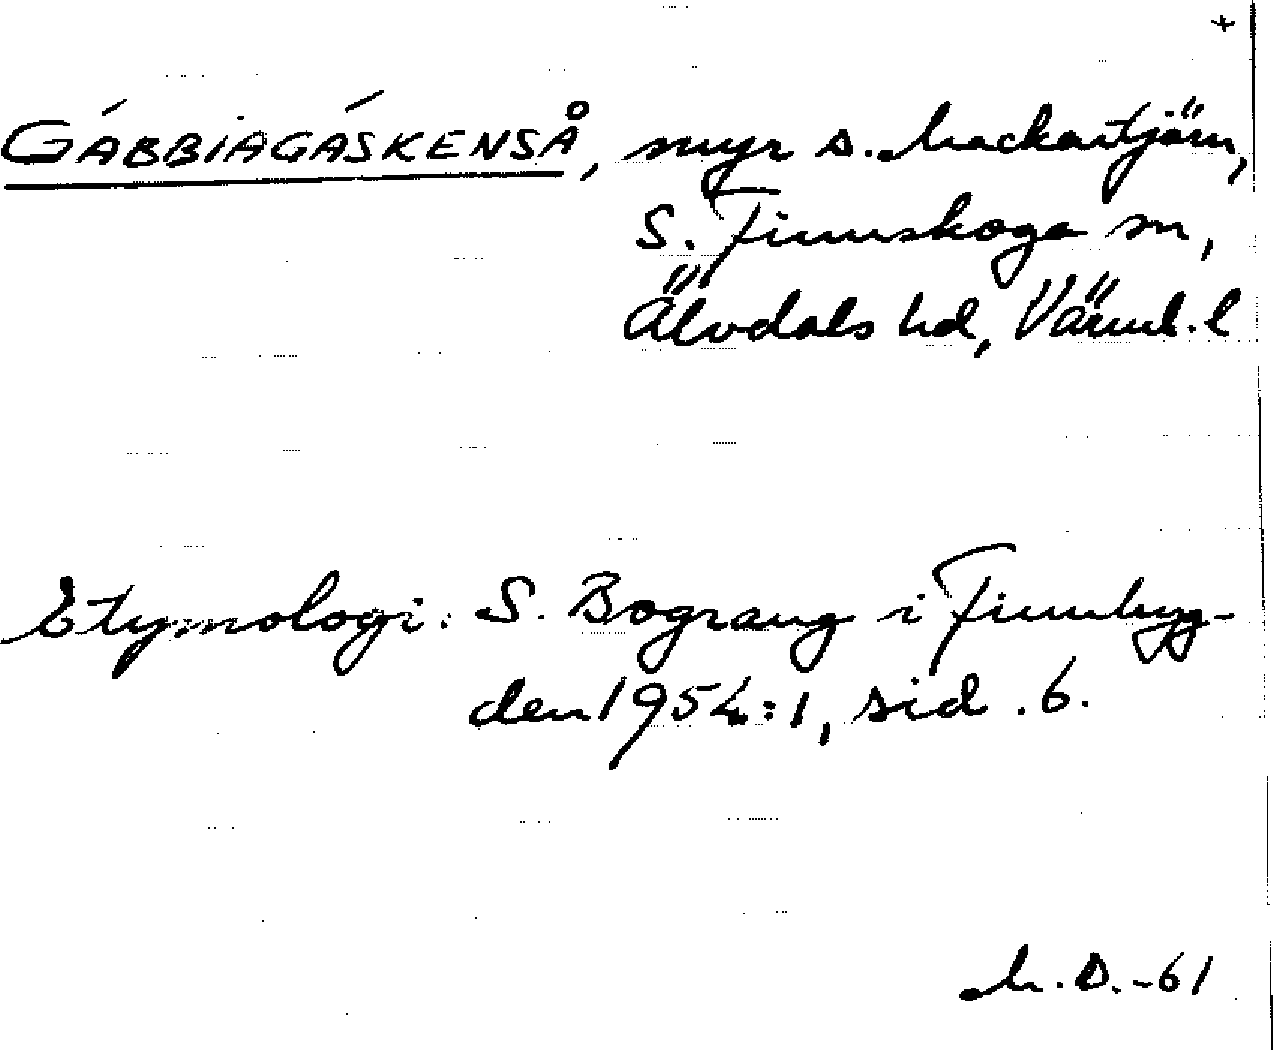 +
GÁBBIAGÁSKENSÅ, myr s. Mackartjärn,
S. Finnskoga sn,
Älvdals hd, Värml. l
Etymologi: S. Bograng i Finnbyg-
den 1954:1, sid. 6.
M. D. -61